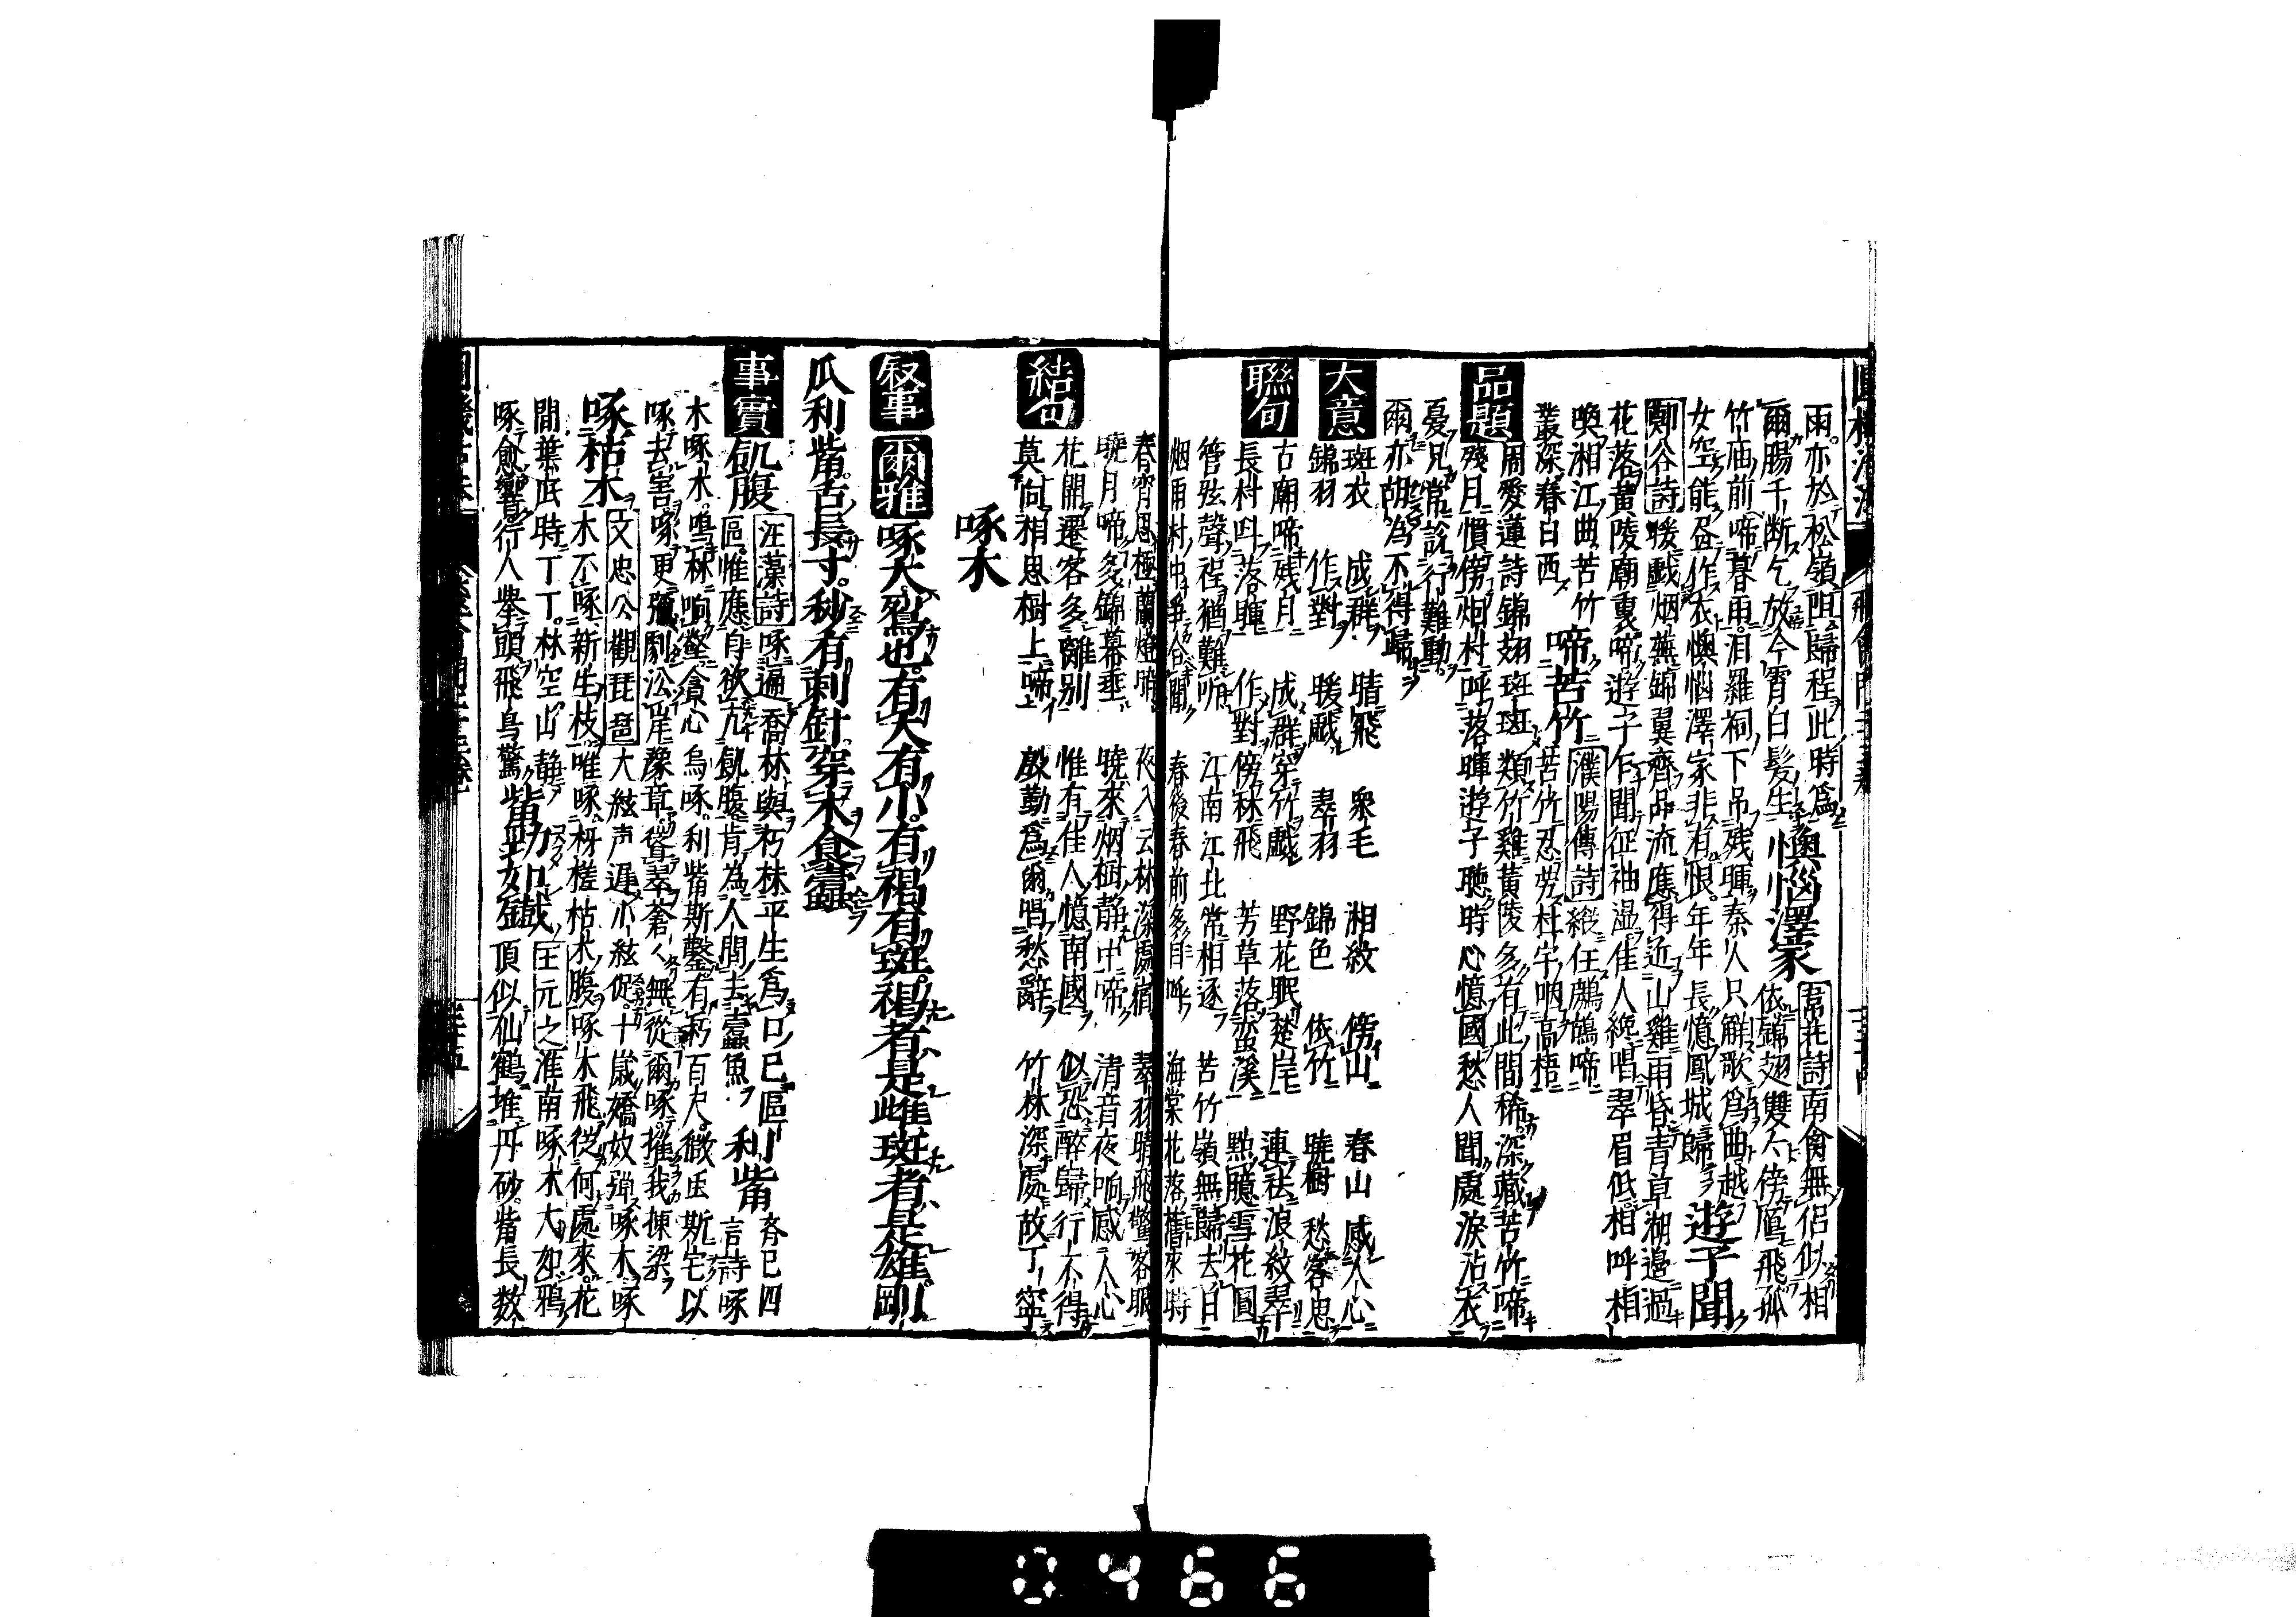 雨亦於松嶺阻歸程此時爲懊惱澤家韋莊詩南禽無侶似相
爾腸千断乞放今宵白髮生依錦翅雙々傍鴈飛孤
竹庙前啼暮雨汨羅祠下吊残暉秦人只解歌爲曲越
女空能画作衣懊惱澤家非有恨年年長憶鳳城歸遊子聞
鄭谷詩暖戯烟蕪錦翼齊品流應得近山雞雨昏青草湖邉過
花落黄陵廟裏啼遊子乍聞征袖湿佳人纔唱翠眉低相呼相
喚湘江曲苦竹
叢深春日西
啼苦竹濮陽傳詩
苦竹忍
品題
周愛蓮詩錦翅斑斑類竹雞黃陵多有此間稀深藏苦竹啼
残月慣傍烟村呼落暉遊子聴時心憶國愁人聞處淚沾衣
憂兄常說行難動
爾亦胡為不得歸
大意
斑衣 成群 晴飛 衆毛 湘紋 傍山 春山 感人心
錦羽 作對 暖戯 翠羽 錦色 依竹 曉樹 愁客思
聯句
古廟啼残月 成群穿竹戯 野花眠楚岸 連袪浪紋翠
長村呌落暉 作對傍林飛 芳草落蛮溪 點臆雪花圓
管弦聲裡猶難听 江南江北常相逐 苦竹嶺無歸去日
烟雨村中爭合聞 春後春前多自呼 海棠花落舊來時
春宵思極蘭燈暗 夜入云林深處宿 翠羽晴飛驚客眼
曉月啼多錦幕垂 曉來烟樹静中啼 清音夜响感人心
結句
花開遷客多離别 惟有佳人憶南國 似恐醉歸行不得
莫向相思樹上啼 慇勤爲爾唱愁辭 竹林深處故丁寧
啄木
叙事 爾雅 啄大鴷也有大有小有褐有斑褐者是雌斑者是雄剛
爪利觜舌長寸杪有刺針穿木食蠧
事實
飢腹汪藻詩啄遍喬林與朽株平生爲口已區
區惟應自欲充飢腹肯為人間去蠧魚利觜
言詩啄
木啄木鳴林响壑貪心烏啄利觜斯鑿有朽百尺微虫斯宅以
啄去害啄更殲劇沿岸豫章聳翠蒼々無從爾啄摧我棟梁
文忠公觀琵琶大絃声遅小絃促十歳嬌奴弾啄木啄
啄枯木木不啄新生枝唯啄枒槎枯木腹啄木飛從何處來花
間葉底時丁丁林空山静
啄愈響行人擧頭飛鳥驚
觜勁如鐵王元之淮南啄木大如鴉
頂似仙鶴堆丹砂觜長数
0466